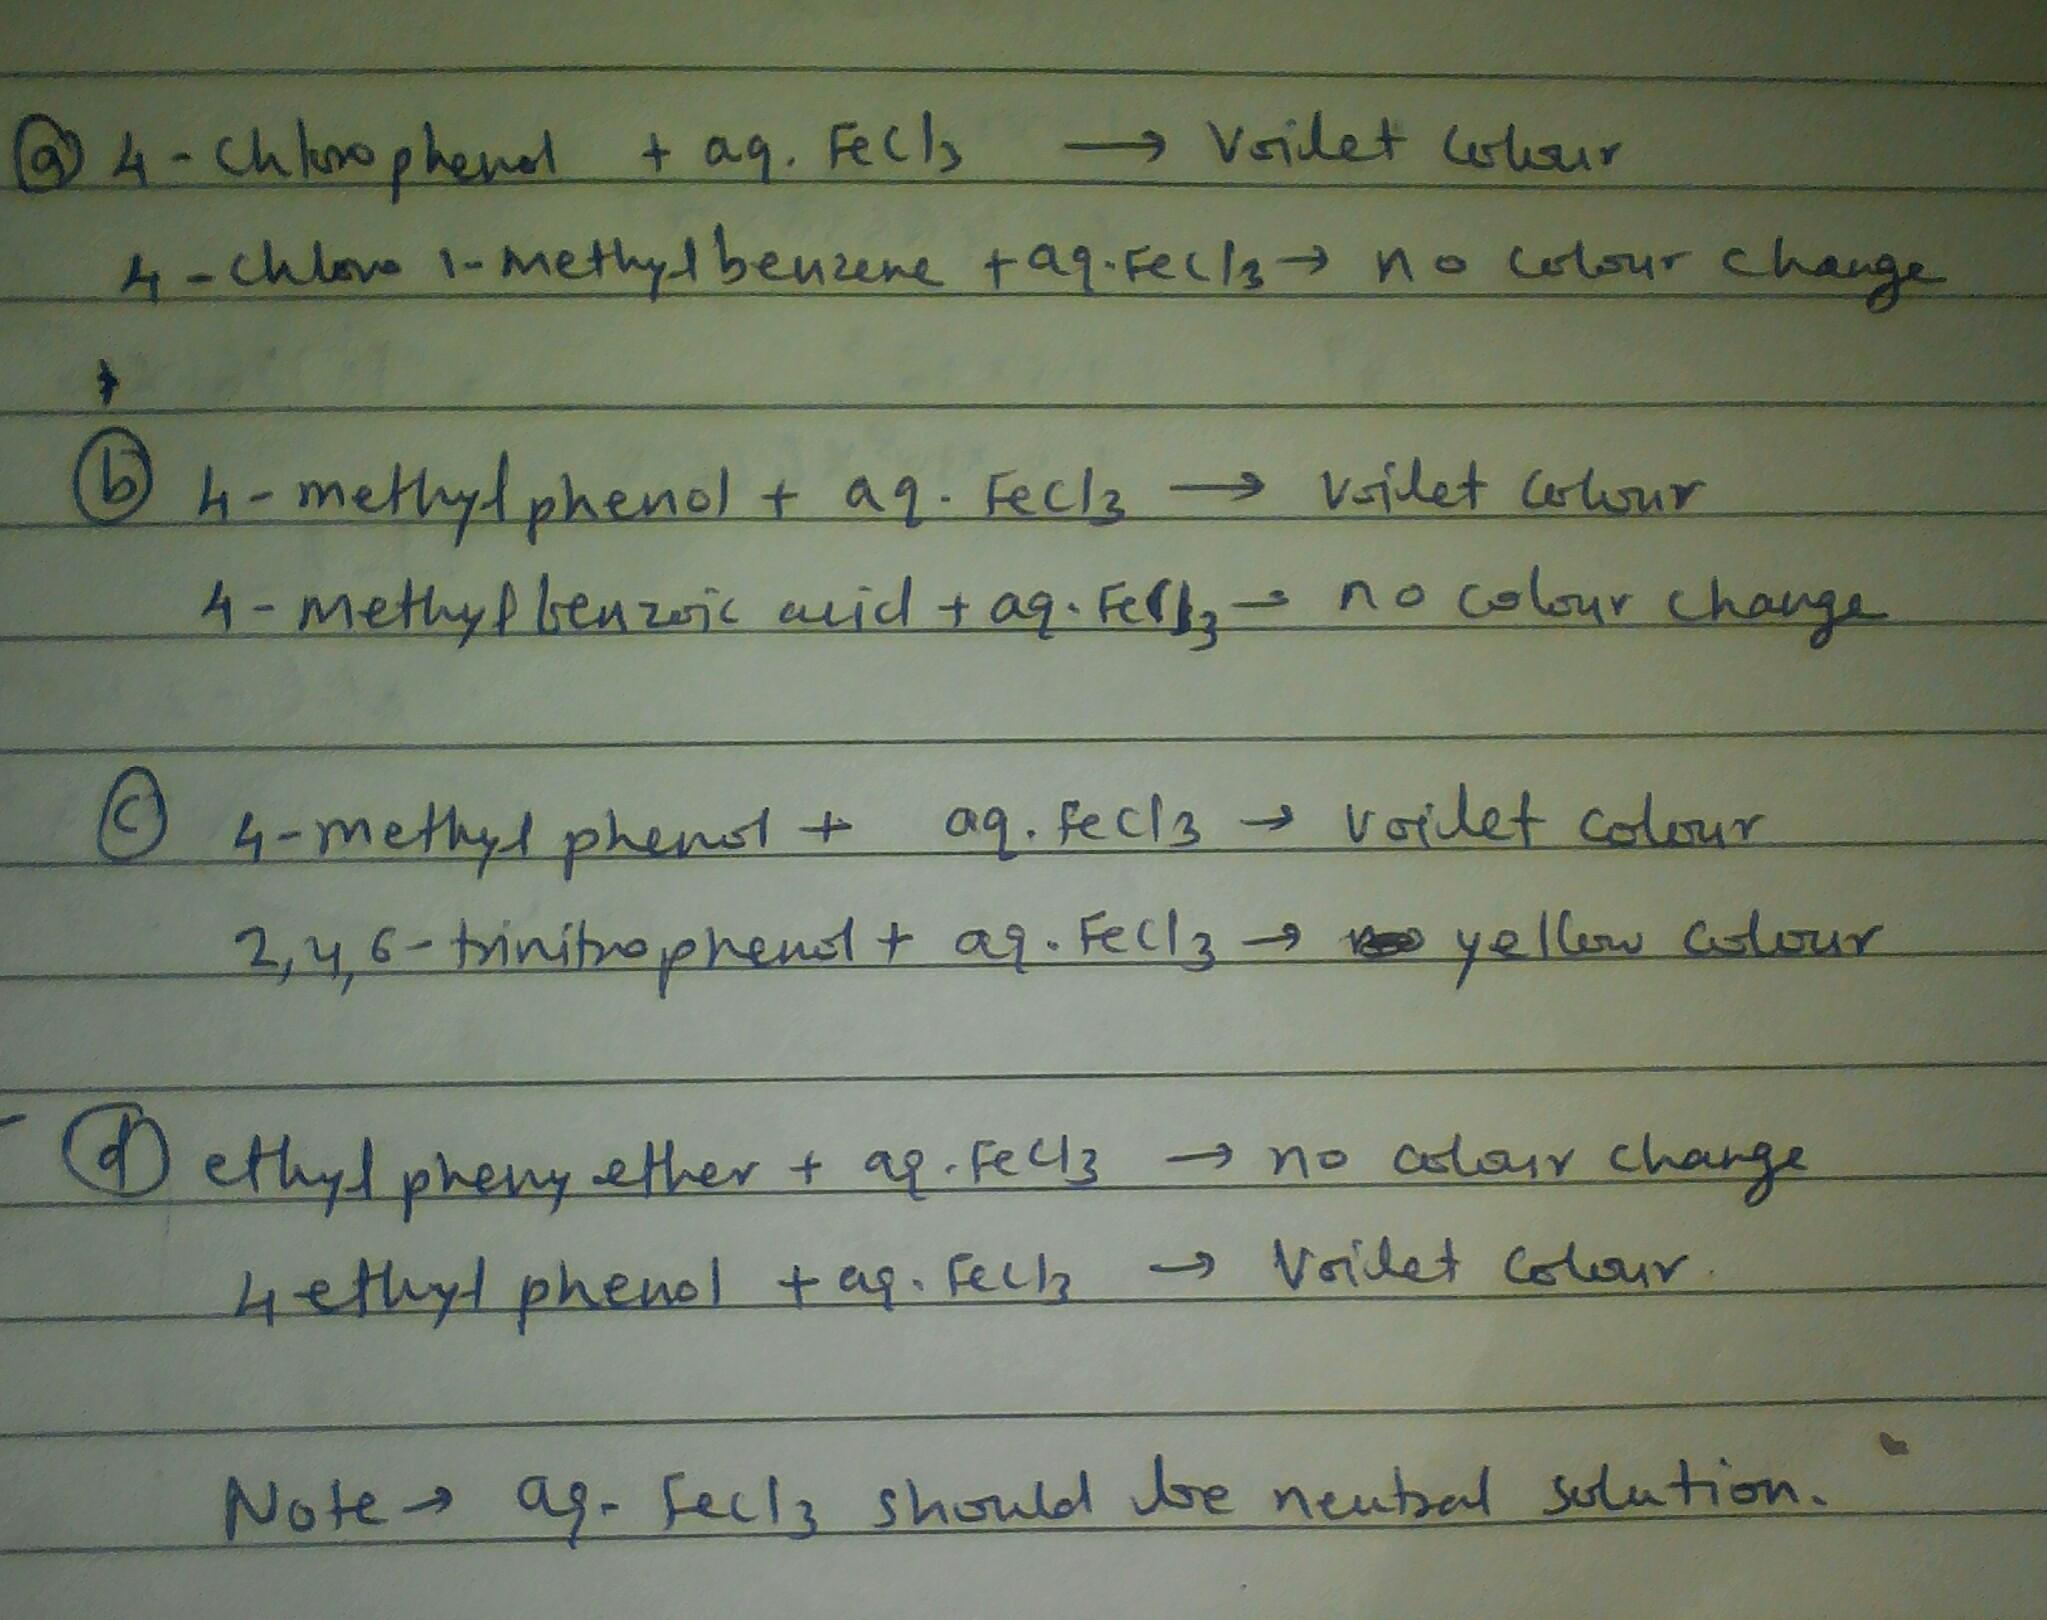 (a) 4-Chlorophenol + aq. FeCl3 → Voilet Colour
4-Chloro 1-methylbenzene + aq. FeCl3 → no colour change
(b) 4-methylphenol + aq. FeCl3 → Voilet Colour
4-methylbenzoic acid + aq. FeCl3 → no colour change
(c) 4-methyl phenol + aq. FeCl3 → voilet colour
2,4,6-trinitrophenol + aq. FeCl3 → yellow colour
(d) ethyl pheny ether + aq. FeCl3 → no colour change
4 ethyl phenol + aq. FeCl3 → Voilet Colour.
Note → aq. FeCl3 should be neutral solution.